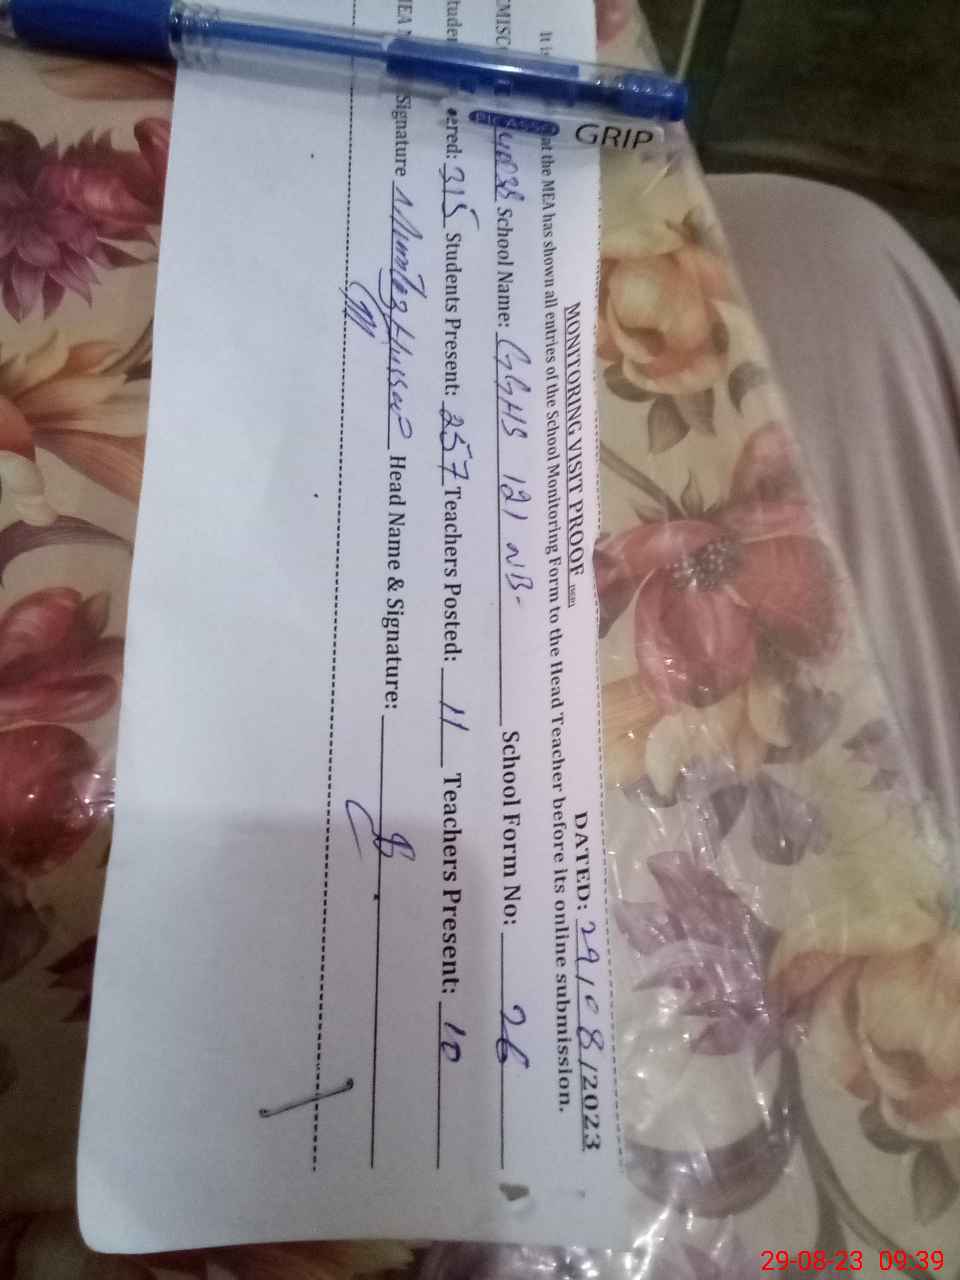 GRIP
MONITORING VISIT PROOF DATED: 29/08/2023
It is at the MEA has shown all entries of the School Monitoring Form to the Head Teacher before its online submission.
EMISC School Name: GGHS 121 NB- School Form No: 26
ered: 315 Students Present: 257 Teachers Posted: 11 Teachers Present: 10
Signature Head Name & Signature:
29-08-23 09:39